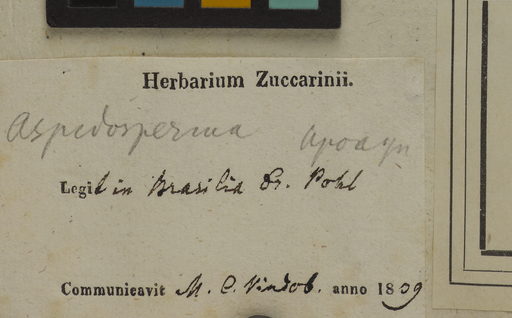 Herbarium Zuccarinii.
Aspidosperma Apocyn
Legit in Brasilia Dr. Pohl
Communicavit M. C. Vindob. anno 1839